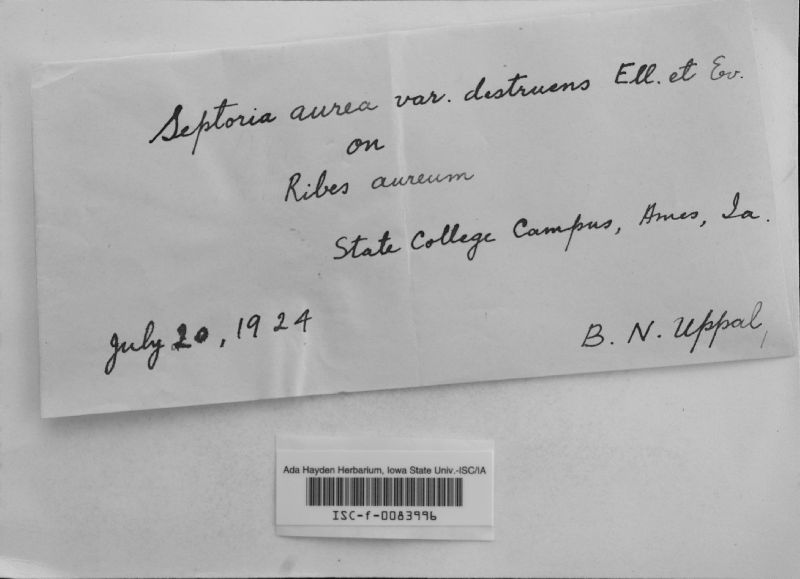 Septoria aurea var. destruens Ell. et Ev.
on
Ribes aureum
State College Campus, Ames, Ia.
July 20, 1924
B. N. Uppal,
Ada Hayden Herbarium, Iowa State Univ.-ISC/IA
ISC-f-0083996